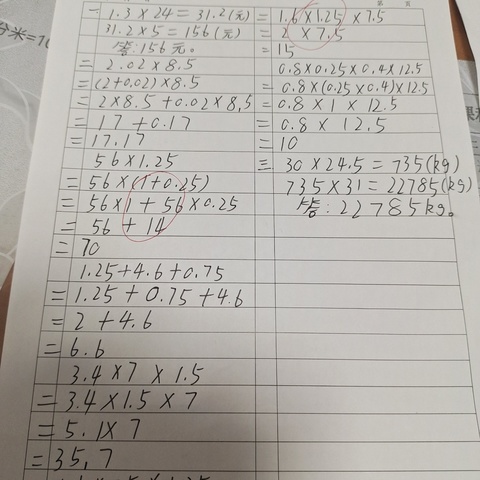 一 1.3×24=31.2(元)
31.2×5=156(元)
答:156元。
二 2.02×8.5
=(2+0.02)×8.5
=2×8.5+0.02×8.5
=17+0.17
=17.17
56×1.25
=56×(1+0.25)
=56×1+56×0.25
=56+14
=70
1.25+4.6+0.75
=1.25+0.75+4.6
=2+4.6
=6.6
3.4×7×1.5
=3.4×1.5×7
=5.1×7
=35.7
=1.6×1.25×7.5
=2×7.5
=15
0.8×0.25×0.4×12.5
=0.8×(0.25×0.4)×12.5
=0.8×1×12.5
=0.8×12.5
=10
三 30×24.5=735(kg)
735×31=22785(kg)
答:22785kg。
分米=1